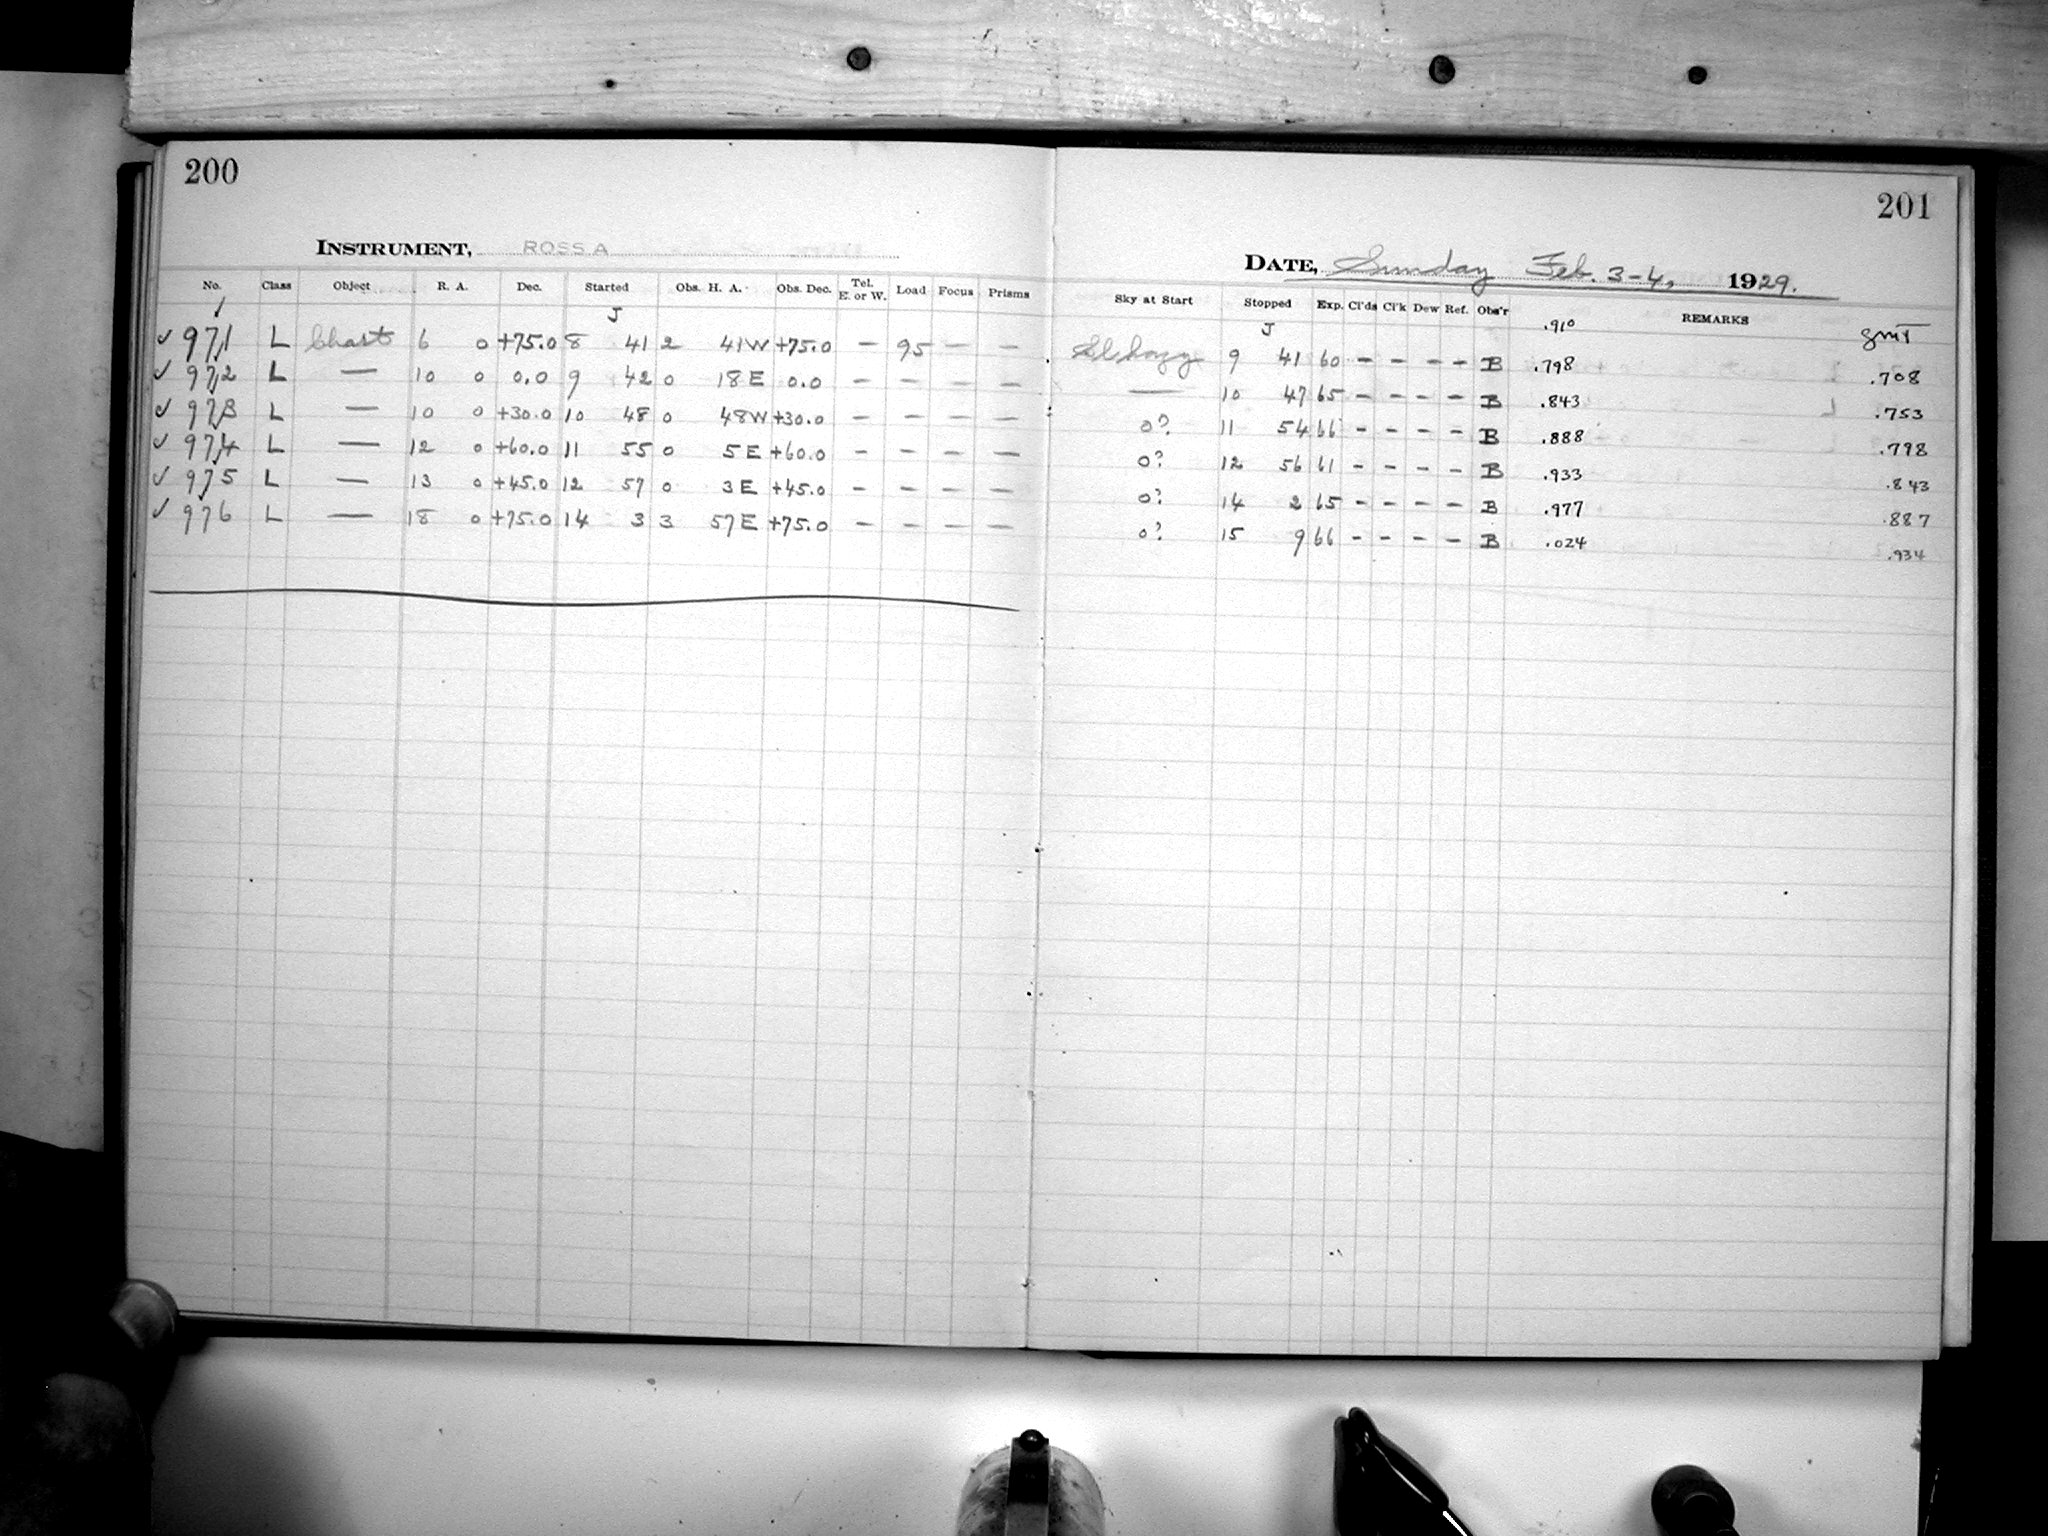 200
INSTRUMENT, ROSS A
No. Class Object R. A. Dec. Started Obs. H. A. Obs. Dec. Tel. E. or W. Load Focus Prisms
J
✓ 971 L Chart 6 0 +75.0 8 41 2 41W +75.0 — 95 — —
✓ 972 L — 10 0 0.0 9 42 0 18 E 0.0 — — — —
✓ 973 L — 10 0 +30.0 10 48 0 48W +30.0 — — — —
✓ 974 L — 12 0 +60.0 11 55 0 5 E +60.0 — — — —
✓ 975 L — 13 0 +45.0 12 57 0 3 E +45.0 — — — —
✓ 976 L — 18 0 +75.0 14 3 3 57 E +75.0 — — — —
201
DATE, Sunday Feb. 3-4, 1929.
Sky at Start Stopped Exp. Cl'ds Cl'k Dew Ref. Obs'r REMARKS
J .910 GMT
Sl hazy 9 41 60 — — — — B .798 .708
— 10 47 65 — — — — B .843 .753
0? 11 54 66 — — — — B .888 .798
0? 12 56 61 — — — — B .933 .843
0? 14 2 65 — — — — B .977 .887
0? 15 9 66 — — — — B .024 .934